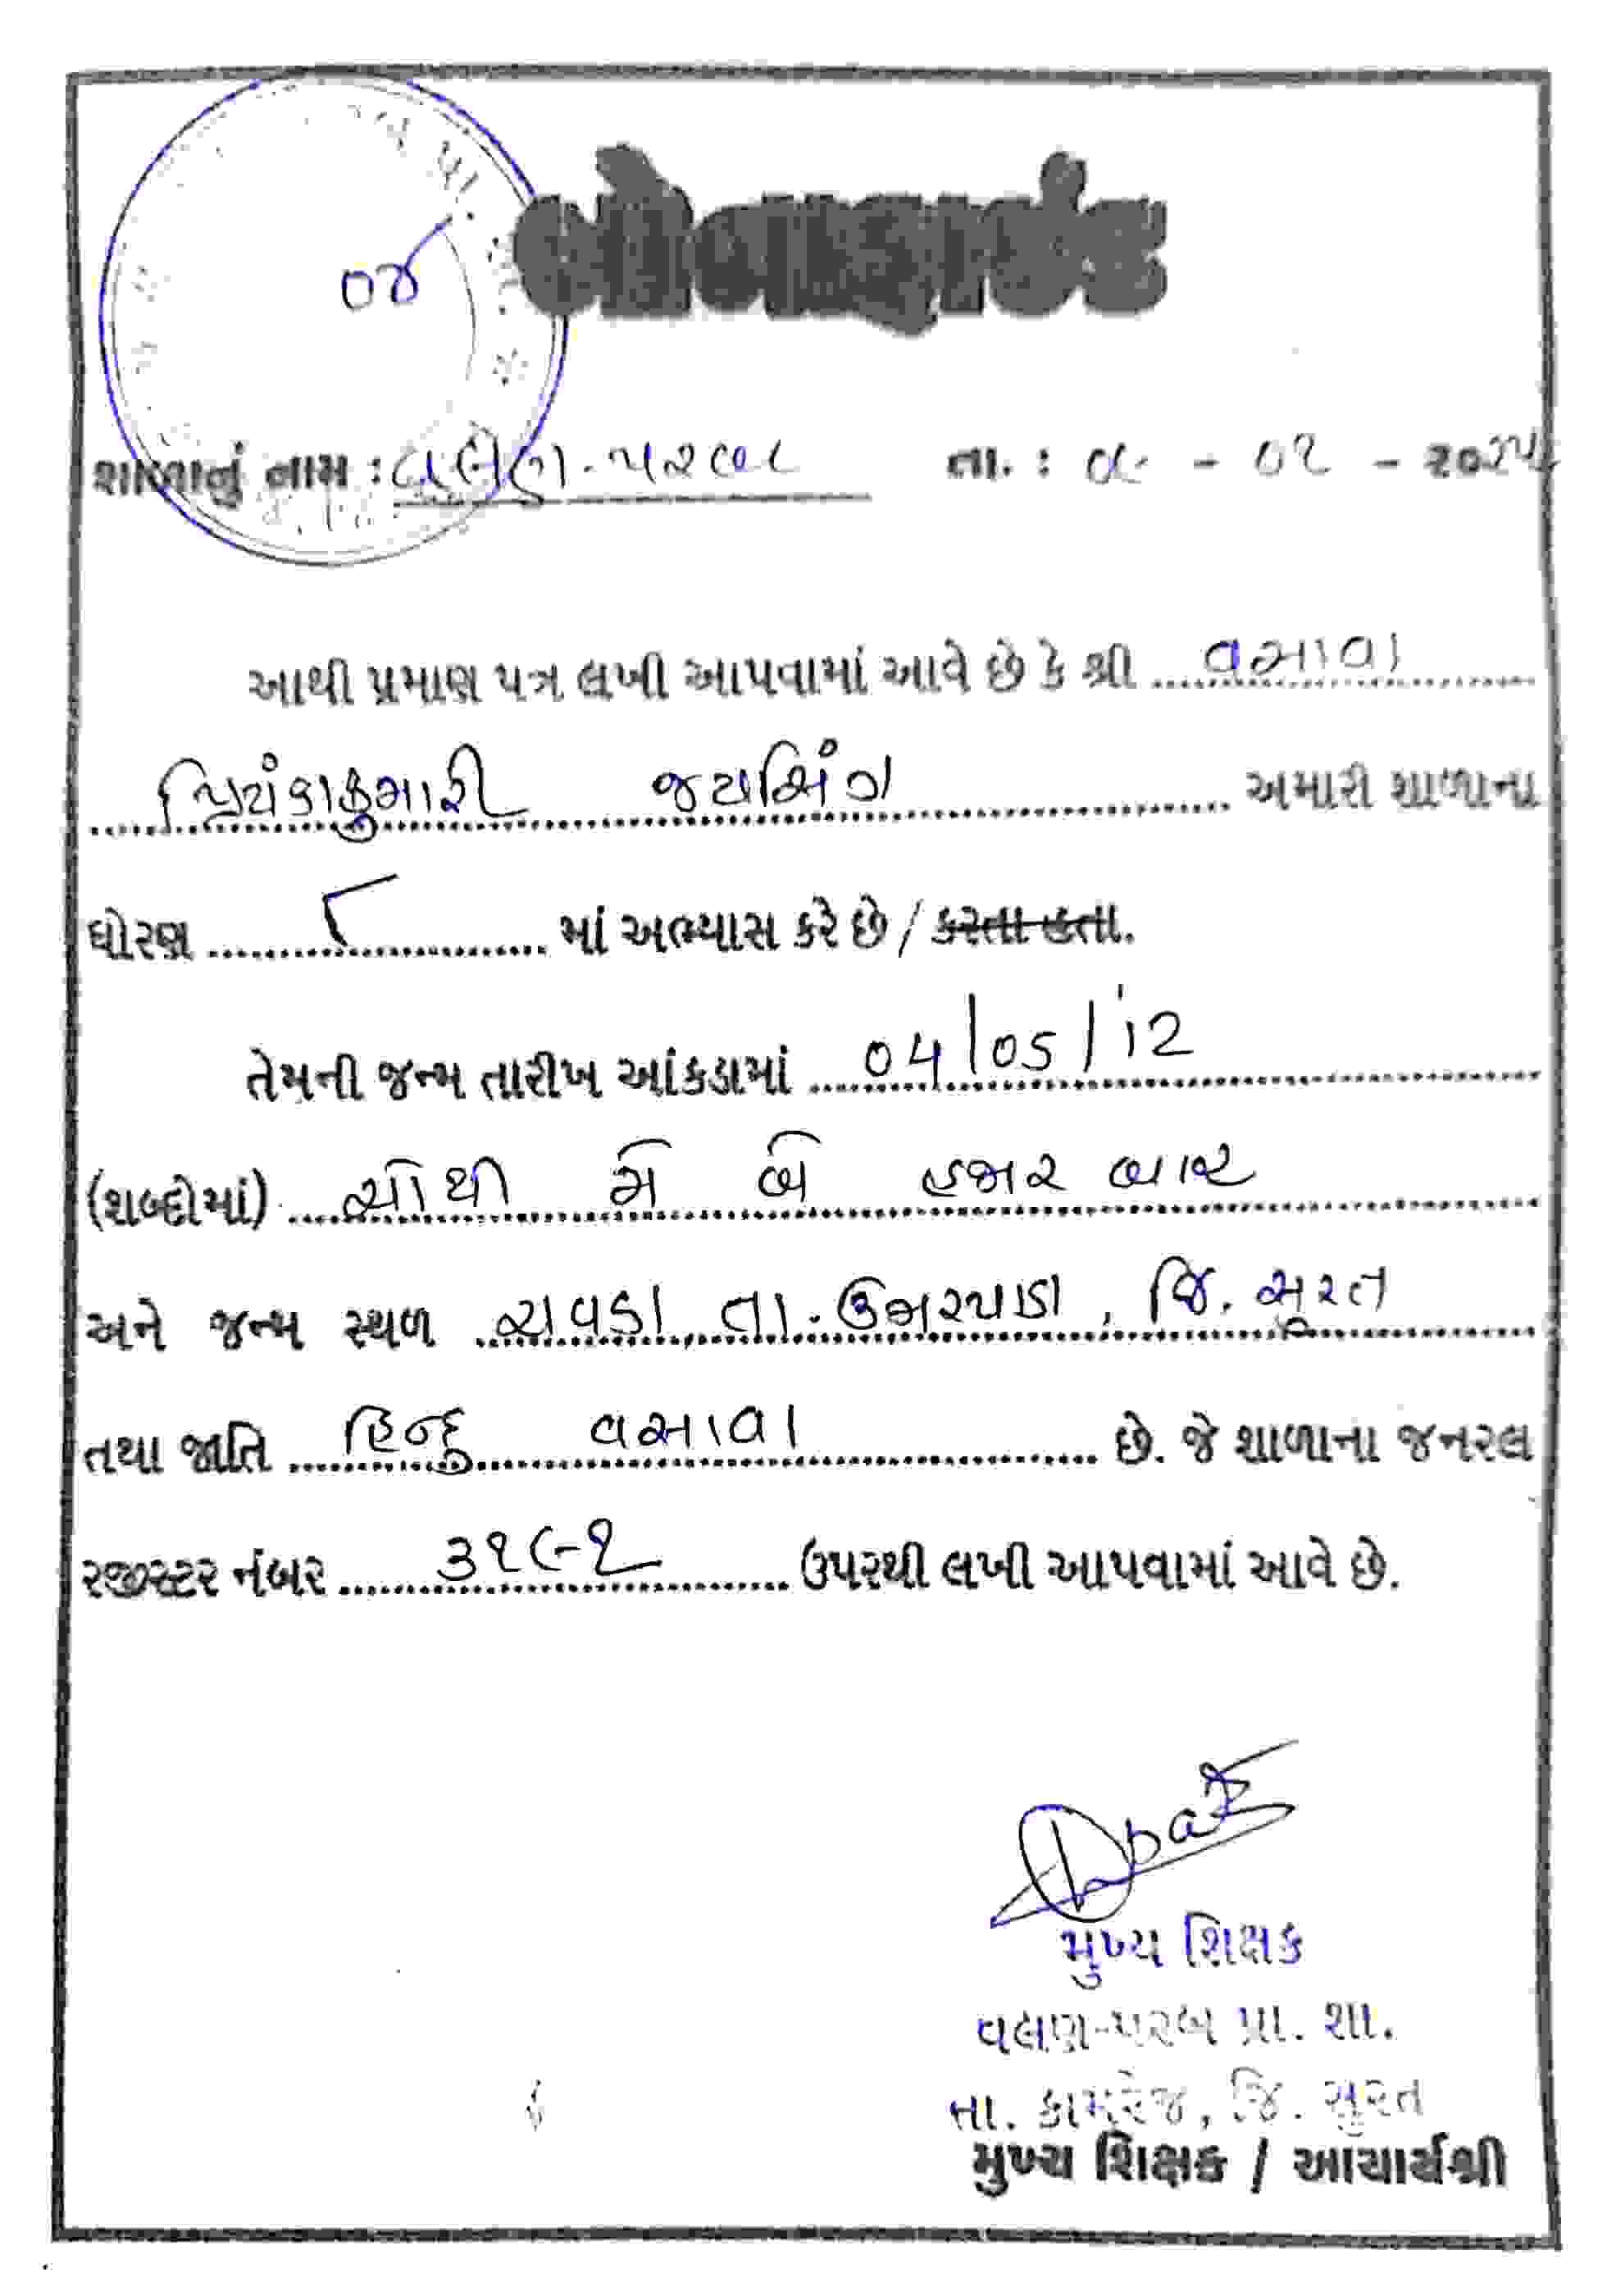 બોનાફાઈડ
૦૪
શાળાનું નામ : વલણ-પરબ તા. : - ૦૨ - ૨૦૨૫
આથી પ્રમાણ પત્ર લખી આપવામાં આવે છે કે શ્રી વસાવા
પ્રિયંકાકુમારી જયસિંગ અમારી શાળાના
ધોરણ ૮ માં અભ્યાસ કરે છે / કરતા હતા.
તેમની જન્મ તારીખ આંકડામાં 04/05/12
(શબ્દોમાં) ચોથી મે બે હજાર બાર
અને જન્મ સ્થળ ચવડા, તા. ઉમરપાડા, જિ. સૂરત
તથા જાતિ હિન્દુ વસાવા છે. જે શાળાના જનરલ
રજીસ્ટર નંબર ૩૧૯૧ ઉપરથી લખી આપવામાં આવે છે.
મુખ્ય શિક્ષક
વલણ-પરબ પ્રા. શા.
તા. કામરેજ, જિ. સુરત
મુખ્ય શિક્ષક / આચાર્યશ્રી